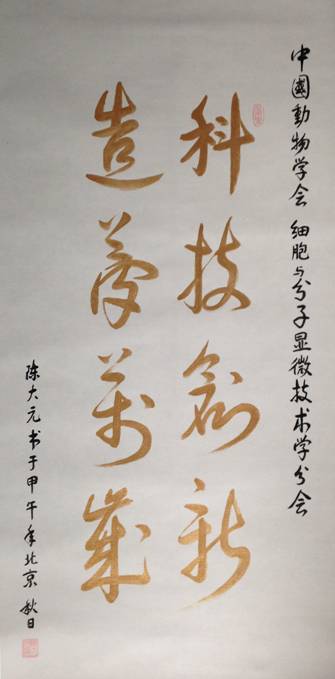 中國動物学会 细胞与分子显微技术学分会
科技創新
造夢萬歲
陈大元书于甲午年北京 秋日